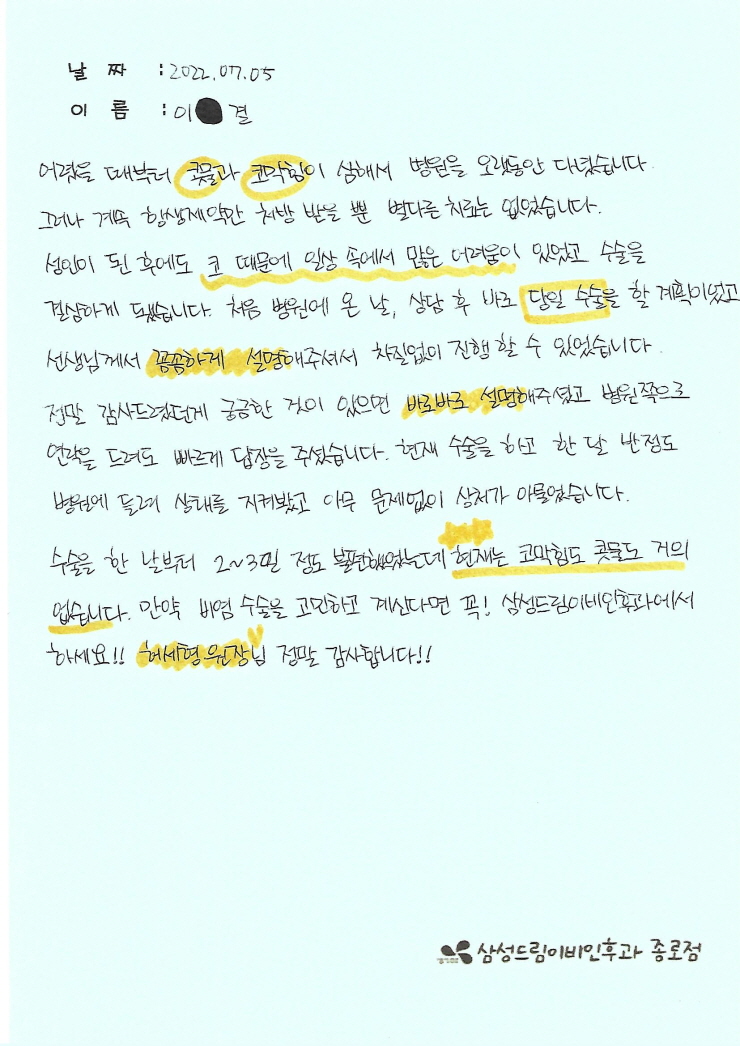 날 짜 : 2022.07.05
이 름 : 이 결
어렸을 때부터 콧물과 코막힘이 심해서 병원을 오랫동안 다녔습니다.
그러나 계속 항생제약만 처방 받을 뿐 별다른 치료는 없었습니다.
성인이 된 후에도 코 때문에 일상 속에서 많은 어려움이 있었고 수술을
결심하게 됐습니다. 처음 병원에 온 날, 상담 후 바로 당일 수술을 할 계획이었고
선생님께서 꼼꼼하게 설명해주셔서 차질없이 진행 할 수 있었습니다.
정말 감사드렸던게 궁금한 것이 있으면 바로바로 설명해주셨고 병원쪽으로
연락을 드려도 빠르게 답장을 주셨습니다. 현재 수술을 하고 한 달 반정도
병원에 들려 상태를 지켜봤고 아무 문제없이 상처가 아물었습니다.
수술을 한 날부터 2~3일 정도 불편했었는데 현재는 코막힘도 콧물도 거의
없습니다. 만약 비염 수술을 고민하고 계신다면 꼭! 삼성드림이비인후과에서
하세요!! 허세형 원장님 정말 감사합니다!!
삼성드림이비인후과 종로점